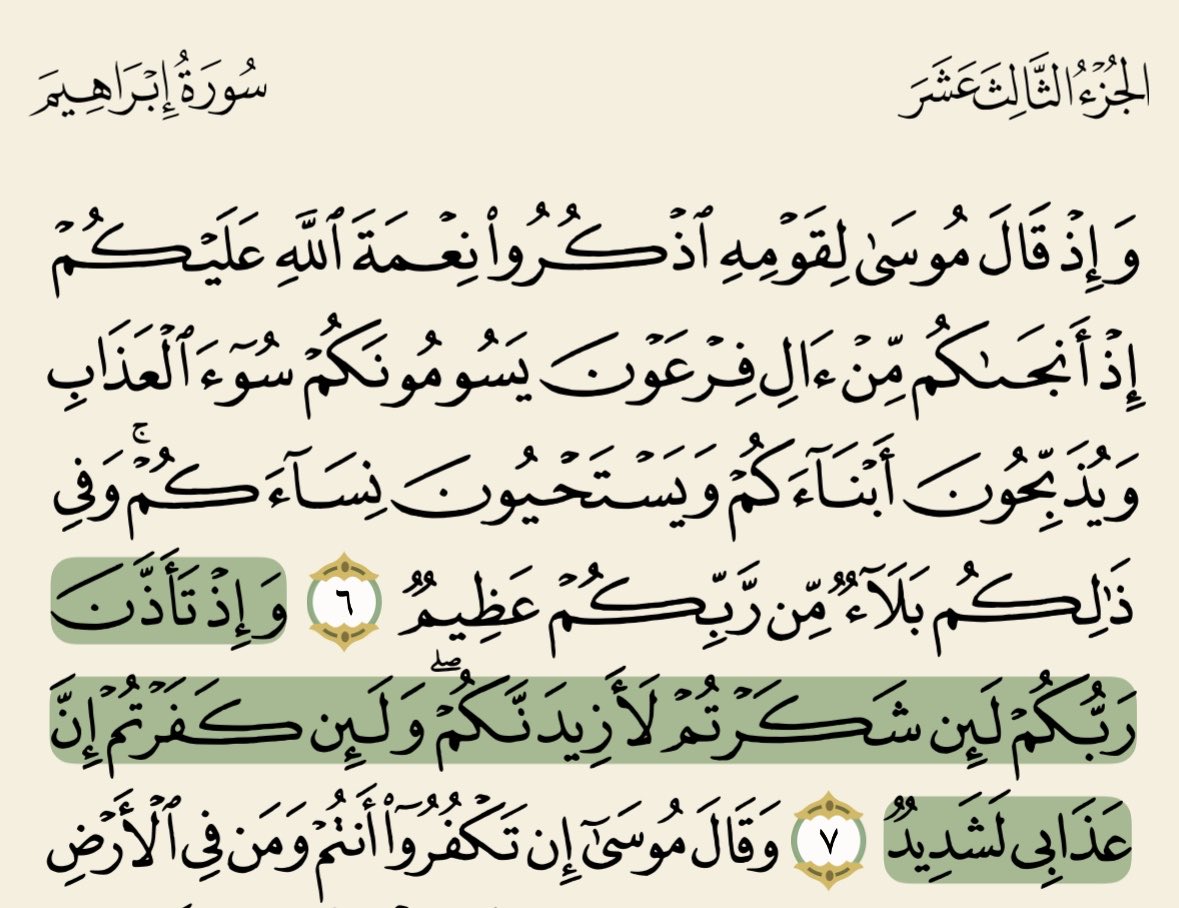 الجُزْءُ الثَّالِثَ عَشَرَ
سُورَةُ إِبْرَاهِيمَ
وَإِذۡ قَالَ مُوسَىٰ لِقَوۡمِهِ ٱذۡكُرُواْ نِعۡمَةَ ٱللَّهِ عَلَيۡكُمۡ
إِذۡ أَنجَىٰكُم مِّنۡ ءَالِ فِرۡعَوۡنَ يَسُومُونَكُمۡ سُوٓءَ ٱلۡعَذَابِ
وَيُذَبِّحُونَ أَبۡنَآءَكُمۡ وَيَسۡتَحۡيُونَ نِسَآءَكُمۡۚ وَفِي
ذَٰلِكُم بَلَآءٞ مِّن رَّبِّكُمۡ عَظِيمٞ ٦ وَإِذۡ تَأَذَّنَ
رَبُّكُمۡ لَئِن شَكَرۡتُمۡ لَأَزِيدَنَّكُمۡۖ وَلَئِن كَفَرۡتُمۡ إِنَّ
عَذَابِي لَشَدِيدٞ ٧ وَقَالَ مُوسَىٰٓ إِن تَكۡفُرُوٓاْ أَنتُمۡ وَمَن فِي ٱلۡأَرۡضِ